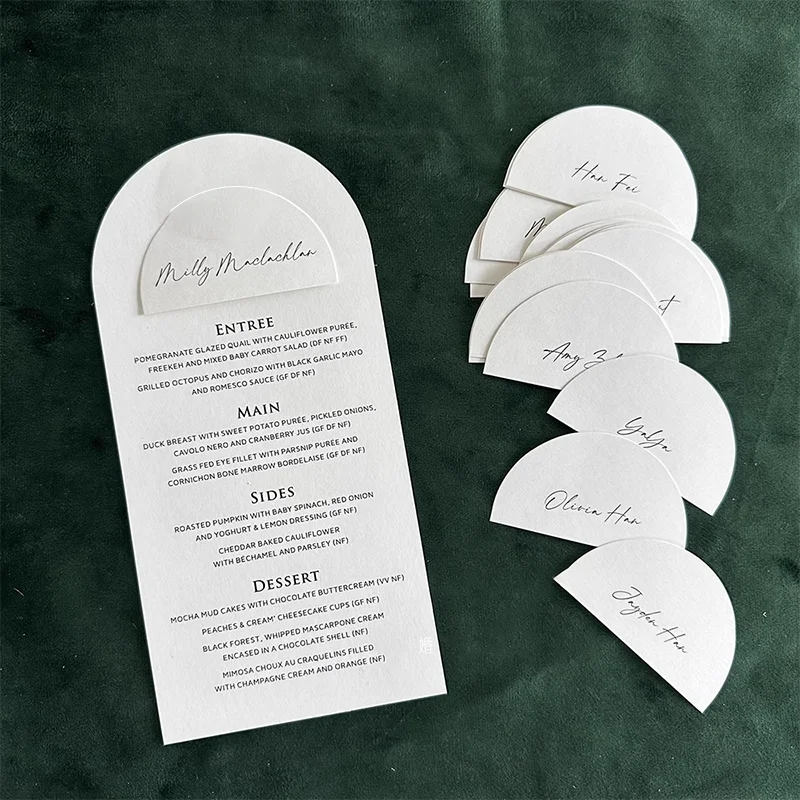 Milly Maclachlan
ENTREE
POMEGRANATE GLAZED QUAIL WITH CAULIFLOWER PURÉE,
FREEKEH AND MIXED BABY CARROT SALAD (DF NF FF)
GRILLED OCTOPUS AND CHORIZO WITH BLACK GARLIC MAYO
AND ROMESCO SAUCE (GF DF NF)
MAIN
DUCK BREAST WITH SWEET POTATO PURÉE, PICKLED ONIONS,
CAVOLO NERO AND CRANBERRY JUS (GF DF NF)
GRASS FED EYE FILLET WITH PARSNIP PURÉE AND
CORNICHON BONE MARROW BORDELAISE (GF DF NF)
SIDES
ROASTED PUMPKIN WITH BABY SPINACH, RED ONION
AND YOGHURT & LEMON DRESSING (GF NF)
CHEDDAR BAKED CAULIFLOWER
WITH BÉCHAMEL AND PARSLEY (NF)
DESSERT
MOCHA MUD CAKES WITH CHOCOLATE BUTTERCREAM (VV NF)
PEACHES & CREAM' CHEESECAKE CUPS (GF NF)
BLACK FOREST, WHIPPED MASCARPONE CREAM
ENCASED IN A CHOCOLATE SHELL (NF)
MIMOSA CHOUX AU CRAQUELINS FILLED
WITH CHAMPAGNE CREAM AND ORANGE (NF)
Han Fei
Amy
YaYa
Olivia Han
Jayden Han